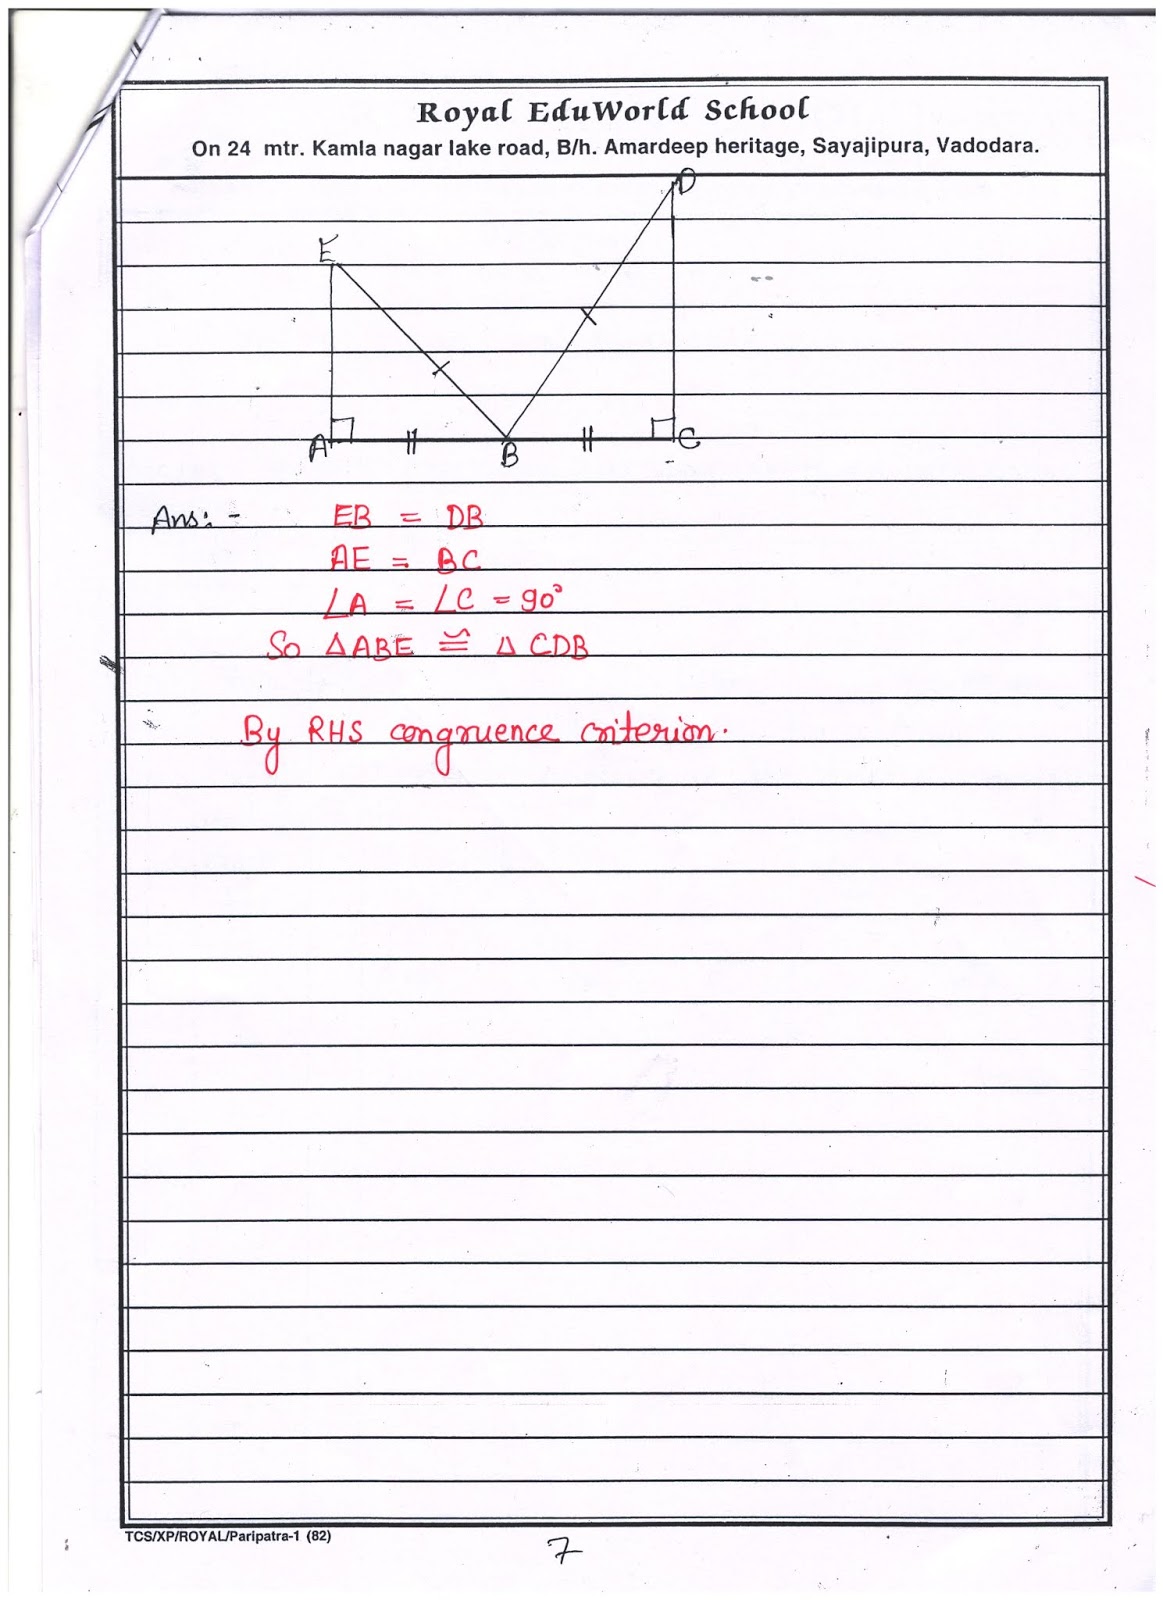 Royal EduWorld School
On 24 mtr. Kamla nagar lake road, B/h. Amardeep heritage, Sayajipura, Vadodara.
D
E
A
B
C
Ans:- EB = DB
AE = BC
∠A = ∠C = 90°
So △ABE ≅ △CDB
By RHS congruence criterion.
TCS/XP/ROYAL/Paripatra-1 (82)
7